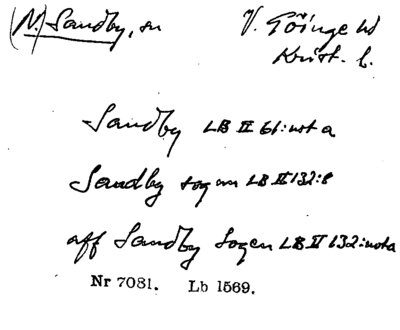 (N.) Sandby, sn V. Göinge hd
Krist. l.
Sandby LB II 61: not a
Sandby sogn LB II 132:8
aff Sandby Sogen LB II 132: nota
Nr 7081. Lb 1569.